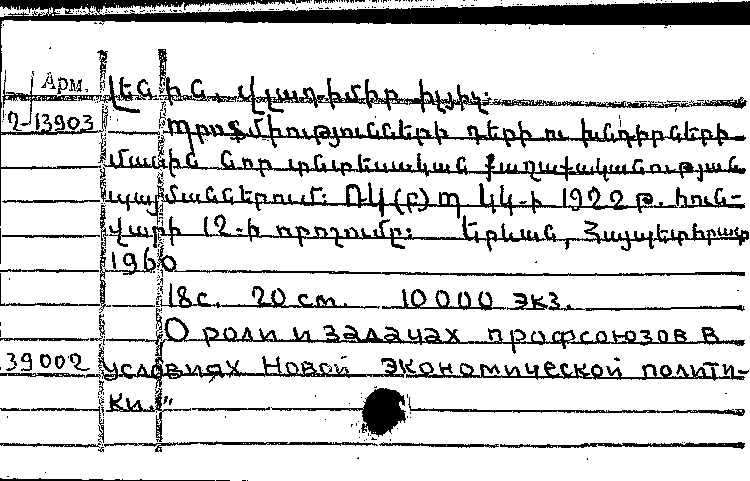 Арм. Լենին, Վլադիմիր Իլյիչ։
Դ-13903 Պրոֆմիությունների դերի ու խնդիրների
մասին նոր տնտեսական քաղաքականության
պայմաններում։ ՌԿ(բ)Պ ԿԿ-ի 1922 թ. հուն-
վարի 12-ի որոշումը։ Երևան, Հայպետհրատ
1960
18с. 20 cm. 10000 экз.
О роли и задачах профсоюзов в
39002 условиях Новой экономической полити-
ки."